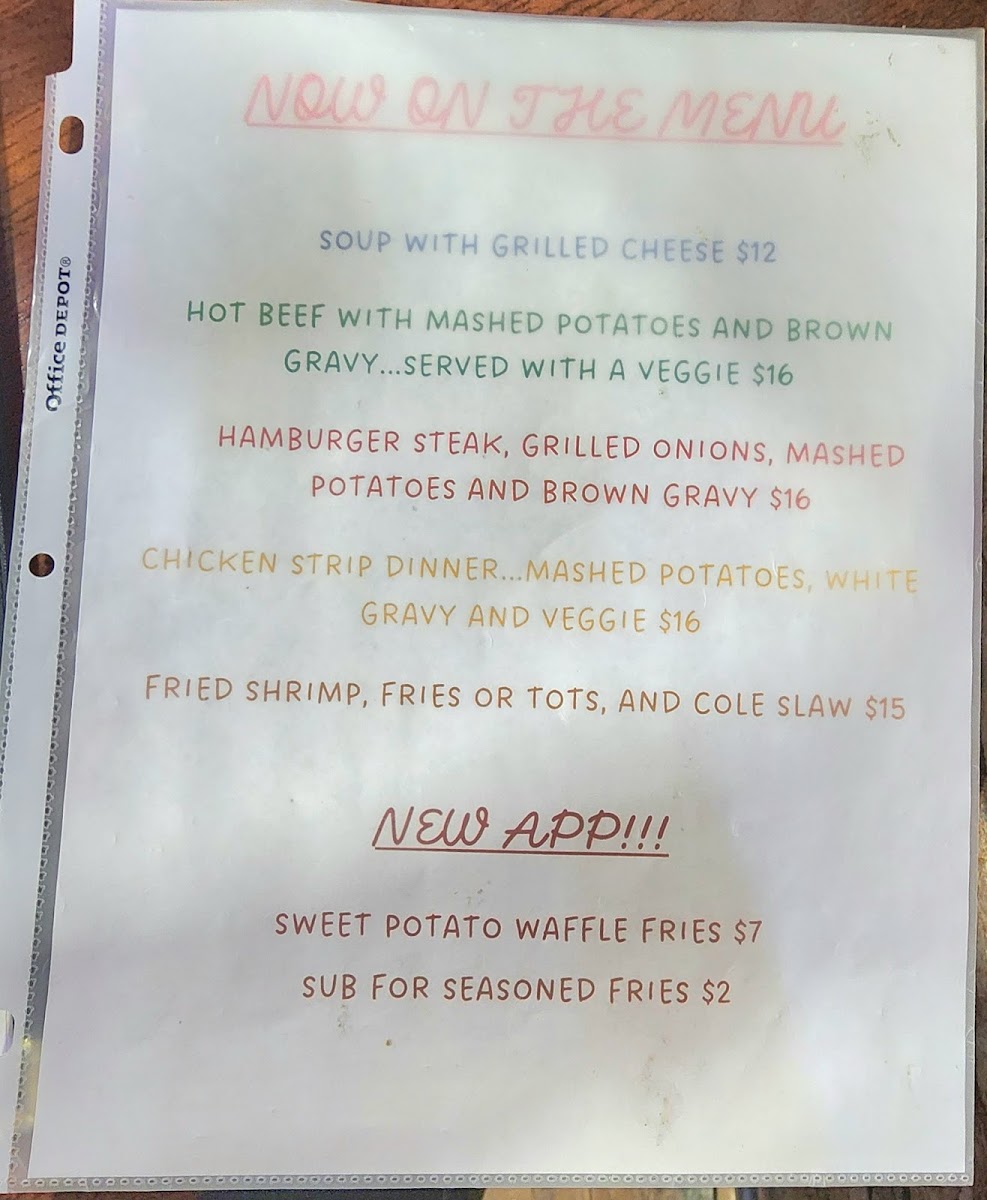 NOW ON THE MENU
Office DEPOT®
SOUP WITH GRILLED CHEESE $12
HOT BEEF WITH MASHED POTATOES AND BROWN
GRAVY...SERVED WITH A VEGGIE $16
HAMBURGER STEAK, GRILLED ONIONS, MASHED
POTATOES AND BROWN GRAVY $16
CHICKEN STRIP DINNER...MASHED POTATOES, WHITE
GRAVY AND VEGGIE $16
FRIED SHRIMP, FRIES OR TOTS, AND COLE SLAW $15
NEW APP!!!
SWEET POTATO WAFFLE FRIES $7
SUB FOR SEASONED FRIES $2